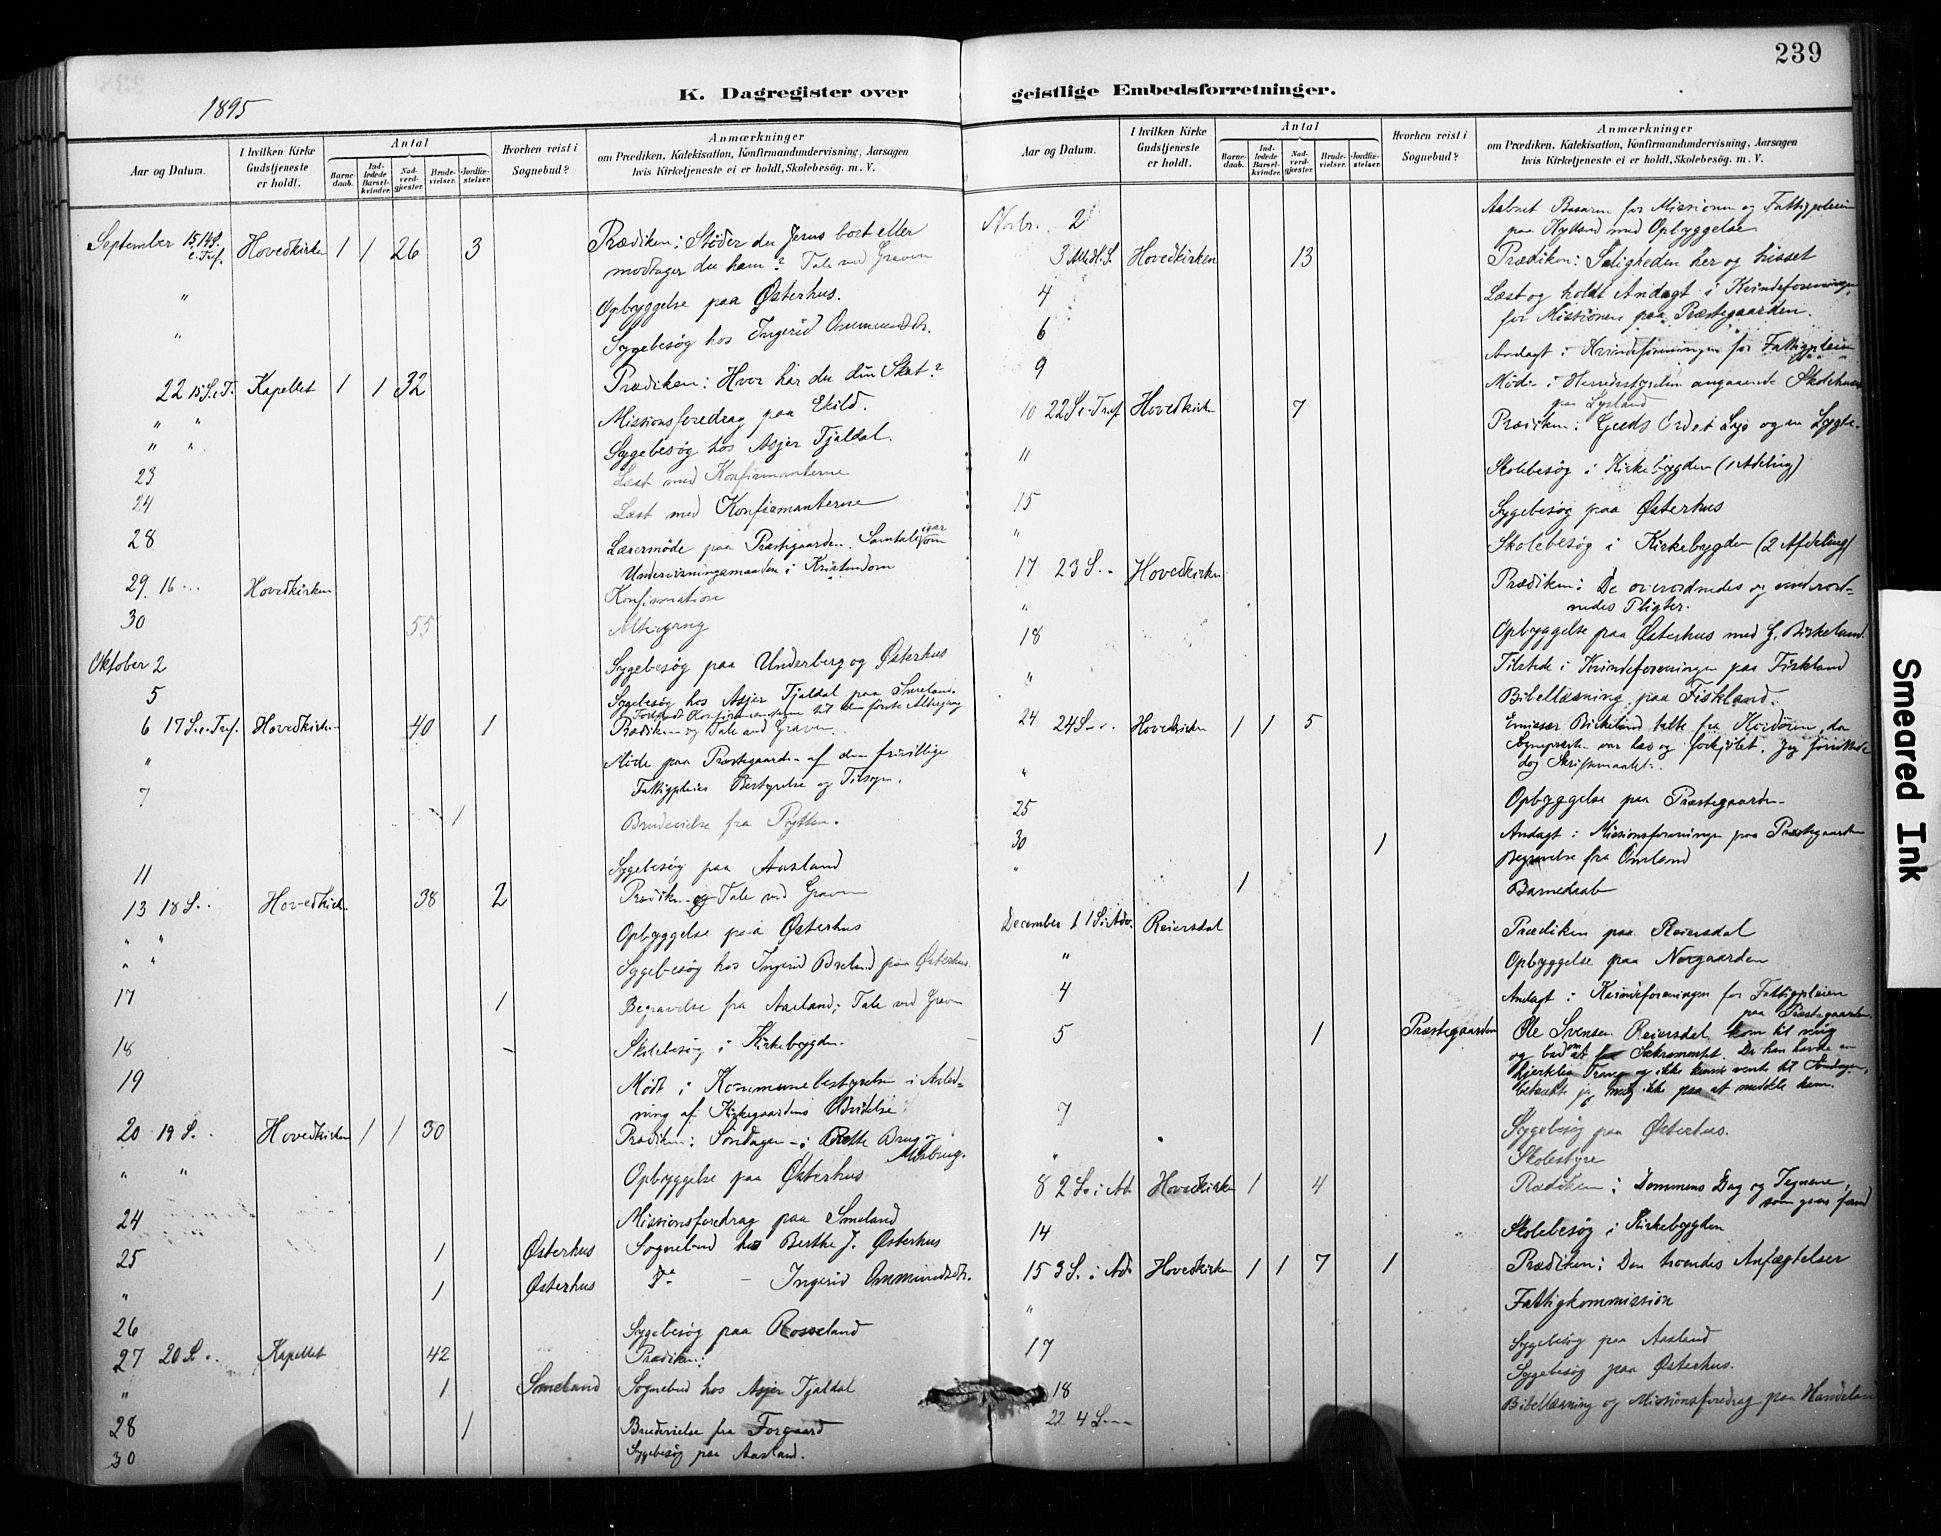 239
1895
K. Dagregister over geistlige Embedsforretninger.
Aar og Datum.
I hvilken Kirke Gudstjeneste er holdt.
Antal
Barnedaab.
Indledede Barselkvinder.
Nadverdgjester.
Brudevielser.
Jordfæstelser.
Hvorhen reist i Sognebud?
Anmærkninger
om Prædiken, Katekisation, Konfirmandundervisning, Aarsagen
hvis Kirketjeneste ei er holdt, Skolebesøg. m. V.
September 15 14 S. e. Tref. Hovedkirken 1 1 26 3 Prædiken: Støder du Jesus bort eller
modtager du ham? Tale ved Graven
" Opbyggelse paa Østerhus.
" Sygebesøg hos Ingerid Ommundsdtr.
22 15 S. e. T. Kapellet 1 1 32 Prædiken: Hvor har du din Skat?
" " Missionsforedrag paa Ekild.
" " Sygebesøg hos Asjer Tjaldal.
23 Læst med Konfirmanterne
24 Læst med Konfirmanterne
28 Lærermøde paa Præstegaarden. Samtale om
Undervisningsmaaden i Kristendom
29 16 Hovedkirken Konfirmation
30 55 Altergang
Oktober 2 Sygebesøg paa Underberg og Østerhus
5 Sygebesøg hos Asjer Tjaldal paa Smeland.
Konfirmanterne til den første Altergang
6 17 S. e. Tref. Hovedkirken 40 1 Prædiken og Tale ved Graven
" Møde paa Præstegaarden af den frivillige
Fattigpleies Bestyrelse og Tilsyn.
7 1 Brudevielse fra Rytten.
11 Sygebesøg paa Aasland
13 18 S. Hovedkirk. 38 2 Prædiken og Tale ved Graven
" " Opbyggelse paa Østerhus
" " Sygebesøg hos Ingerid Breland paa Østerhus.
17 1 Begravelse fra Aasland; Tale ved Graven
18 Skolebesøg i Kirkebygden.
19 Mødt i Kommunebestyrelsen i Anled-
ning af Kirkegaardens Udvidelse.
20 19 S. Hovedkirken 1 1 30 Prædiken: Søndagen i Rette Brug og
Misbrug.
" " Opbyggelse paa Østerhus
24 Missionsforedrag paa Smeland
25 1 Østerhus Sognebud hos Berthe J. Østerhus
" 1 Østerhus Do - Ingerid Ommundsdtr.
26 Sygebesøg paa Rosseland
27 20 S. Kapellet 42 Prædiken:
" 1 Smeland Sognebud hos Asjer Tjaldal
28 1 Brudevielse fra Forgaard
30 Sygebesøg paa Aasland.
Aar og Datum.
I hvilken Kirke Gudstjeneste er holdt.
Antal
Barnedaab.
Indledede Barselkvinder.
Nadverdgjester.
Brudevielser.
Jordfæstelser.
Hvorhen reist i Sognebud?
Anmærkninger
om Prædiken, Katekisation, Konfirmandundervisning, Aarsagen
hvis Kirketjeneste ei er holdt, Skolebesøg. m. V.
Novbr. 2 Aabnet Basaren for Missionen og Fattigpleien
paa med Opbyggelse
3 Hovedkirken 13 Prædiken: Saligheden her og hisset
4 Læst og holdt Andagt i Kvindeforeningen
for Missionen paa Præstegaarden.
6 Andagt i Kvindeforeningen for Fattigpleien
9 Møde i Herredsstyrelsen angaaende Skolehuset
paa Lysland
10 22 S. e. Tref Hovedkirken 7 Prædiken: Guds Ord et Lys og en Lygte.
11 Skolebesøg i Kirkebygden (1 Afdeling)
15 Sygebesøg paa Østerhus
" Skolebesøg i Kirkebygden (2 Afdeling)
17 23 S. Hovedkirken Prædiken: De overordnedes og underord-
nedes Pligter.
" Opbyggelse paa Østerhus med G. Birkeland.
18 Tilstede i Kvindeforeningen paa Fiskland
" Bibellæsning paa Fiskland.
24 24 S. Hovedkirken 1 1 5 Emissær Birkeland talte fra Kordøren, da
Sognepræsten var hæs og forkjølet. Jeg forrettede
dog Skriftemaalet.
" Opbyggelse paa Præstegaarden
25 Andagt i Missionsforeningen paa Præstegaarden
30 1 Begravelse fra Omland
" 1 Barnedaab
December 1 1 S. i Adv. Reiersdal Prædiken paa Reiersdal
" Opbyggelse paa Norgaarden
4 Andagt i Kvindeforeningen for Fattigpleien
paa Præstegaarden.
5 1 Præstegaarden Ole Svensen Reiersdal kom til mig
og bad om at faa Sakramentet. Da han havde en
hjertelig Trang og ikke kunde vente til Søndagen,
betænkte jeg mig ikke paa at meddele ham.
7 Sygebesøg paa Østerhus.
" Skolestyre
8 2 S. i Ad. Hovedkirken 1 4 Prædiken: Dommens Dag og Tegnene,
som gaar forud
14 Skolebesøg i Kirkebygden
15 3 S. i Ad. Hovedkirken 1 1 7 1 Prædiken: Den troendes Anfægtelser
" Fattigkommission
17 Sygebesøg paa Aasland
Sygebesøg paa Østerhus.
18 Bibellæsning og Missionsforedrag paa Handeland
22 4 S.
Smeared Ink